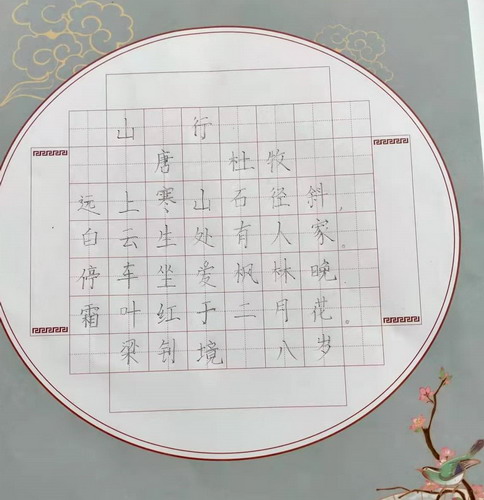 山行
唐 杜牧
远上寒山石径斜，
白云生处有人家。
停车坐爱枫林晚
霜叶红于二月花。
梁钊境 八岁